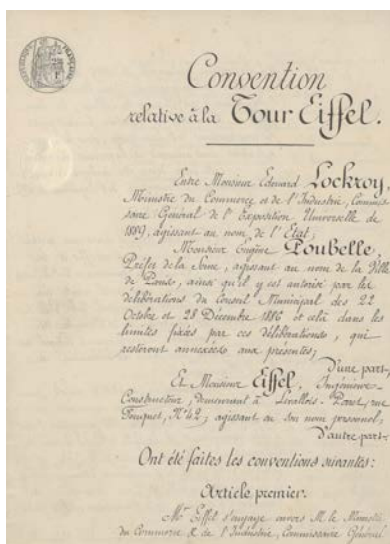 Convention
relative à la Tour Eiffel.
Entre Monsieur Edouard Lockroy,
Ministre du Commerce et de l'Industrie, Commis-
saire Général de l'Exposition Universelle de
1889, agissant au nom de l'Etat;
Monsieur Eugène Poubelle,
Préfet de la Seine, agissant au nom de la Ville
de Paris, ainsi qu'il y est autorisé par les
délibérations du Conseil Municipal des 22
Octobre et 28 Décembre 1886 et cela dans les
limites fixées par ces délibérations, qui
resteront annexées aux présentes;
D'une part,
Et Monsieur Eiffel, Ingénieur-
Constructeur, demeurant à Levallois-Perret, rue
Fouquet, N° 42, agissant en son nom personnel,
D'autre part.
Ont été faites les conventions suivantes:
Article premier.
Mr Eiffel s'engage envers M. le Ministre
du Commerce & de l'Industrie, Commissaire Général